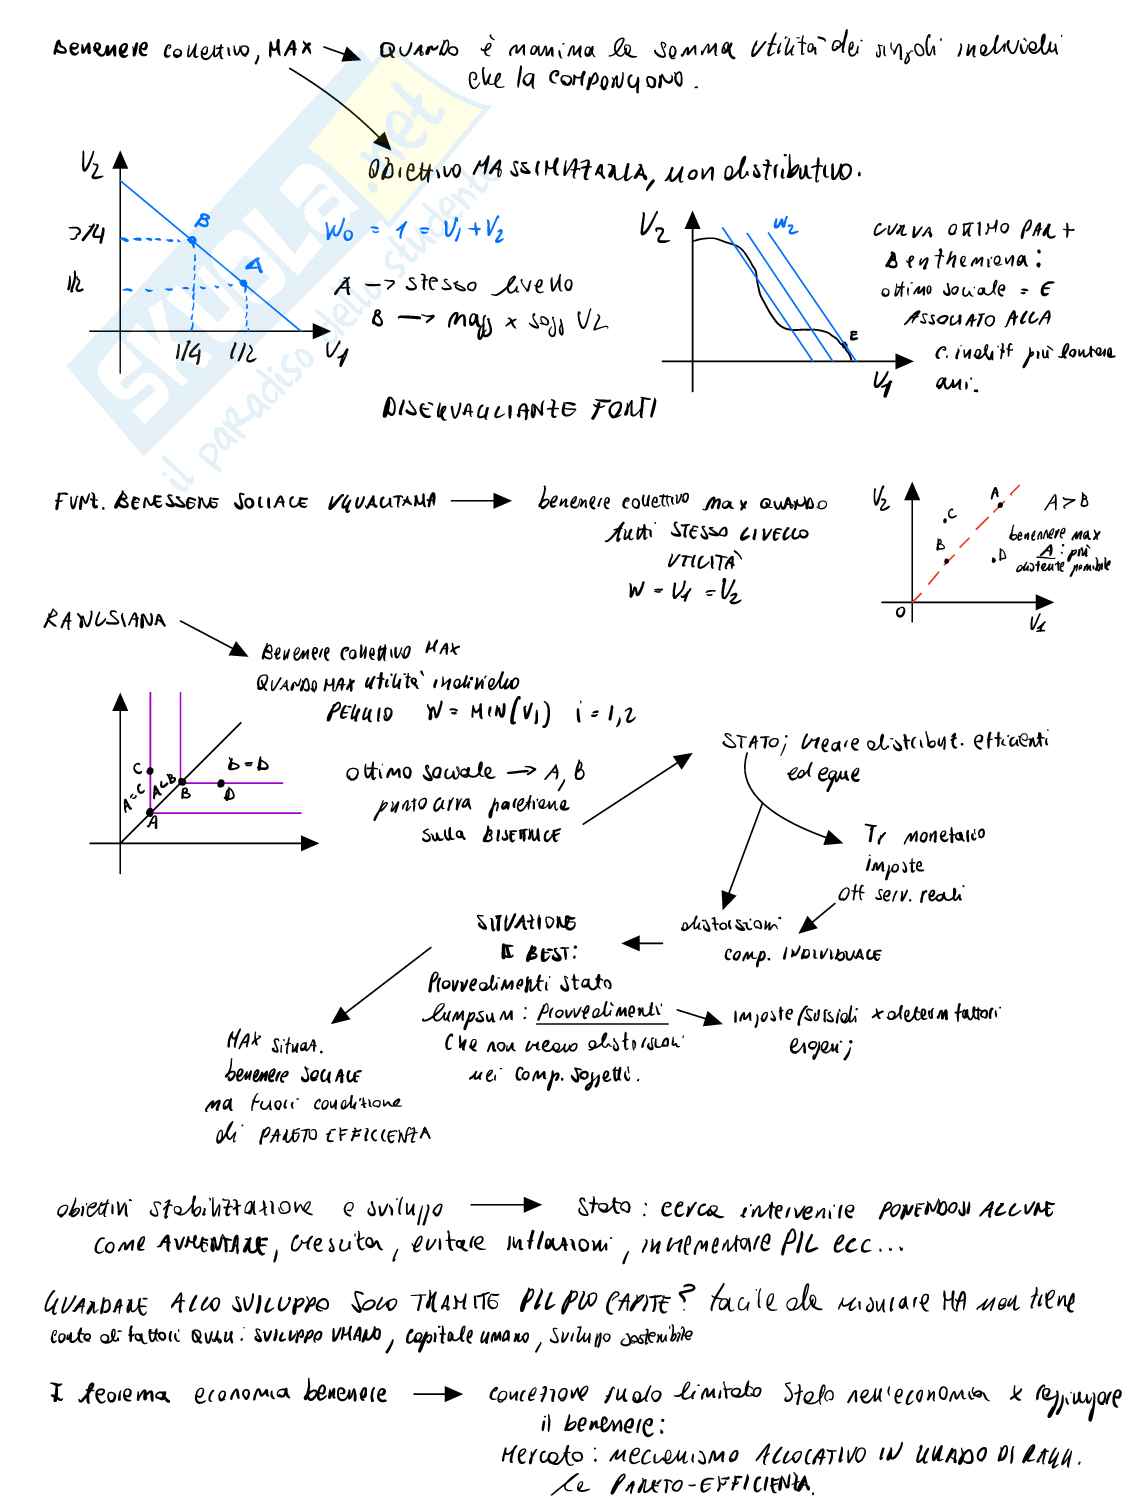 Benessere collettivo, MAX → QUANDO è massima la somma utilità dei singoli individui
che la COMPONGONO.
OBIETTIVO MASSIMIZZARLA, non distributivo.
V2
3/4
1/2
B
A
1/4
1/2
V1
W0 = 1 = V1 + V2
A → stesso livello
B → magg x sogg V2
V2
W2
E
V1
CURVA OTTIMO PAR +
Benthemiana:
ottimo sociale = E
ASSOCIATO ALLA
C. indiff più lontana
assi.
DISEGUAGLIANZE FORTI
SKUOLA.net
il paradiso dello studente
FUNZ. BENESSERE SOCIALE UGUALITARIA → benessere collettivo max QUANDO
tutti STESSO LIVELLO
UTILITÀ
W = V1 = V2
V2
A
C
B
D
O
V1
A > B
benessere max
A : più
distante possibile
RAWLSIANA
Benessere collettivo MAX
QUANDO MAX utilità individuo
PEGGIO W = MIN(V1) i = 1,2
C
A=C
A<B
B
A
B=D
D
ottimo sociale → A, B
punto curva paretiana
sulla BISETTRICE
STATO; creare distribut. efficienti
ed eque
Tr monetario
imposte
Off serv. reali
distorsioni
comp. INDIVIDUALE
SITUAZIONE
II BEST:
Provvedimenti stato
lumpsum : Provvedimenti
che non creano distorsioni
nei comp. soggetti.
Imposte/sussidi x determ fattori
esogeni;
MAX situaz.
benessere SOCIALE
ma fuori condizione
di PARETO EFFICIENZA
obiettivi stabilizzazione e sviluppo → Stato : cerca intervenire PONENDOSI ALCUNE
come AUMENTARE, crescita, evitare inflazioni, incrementare PIL ecc...
GUARDARE ALLO SVILUPPO SOLO TRAMITE PIL PRO CAPITE? facile da misurare MA non tiene
conto di fattori QUALI : SVILUPPO UMANO, capitale umano, sviluppo sostenibile
I teorema economia benessere → concezione ruolo limitato Stato nell'economia x raggiungere
il benessere:
Mercato : MECCANISMO ALLOCATIVO IN GRADO DI RAGG.
la PARETO-EFFICIENZA.